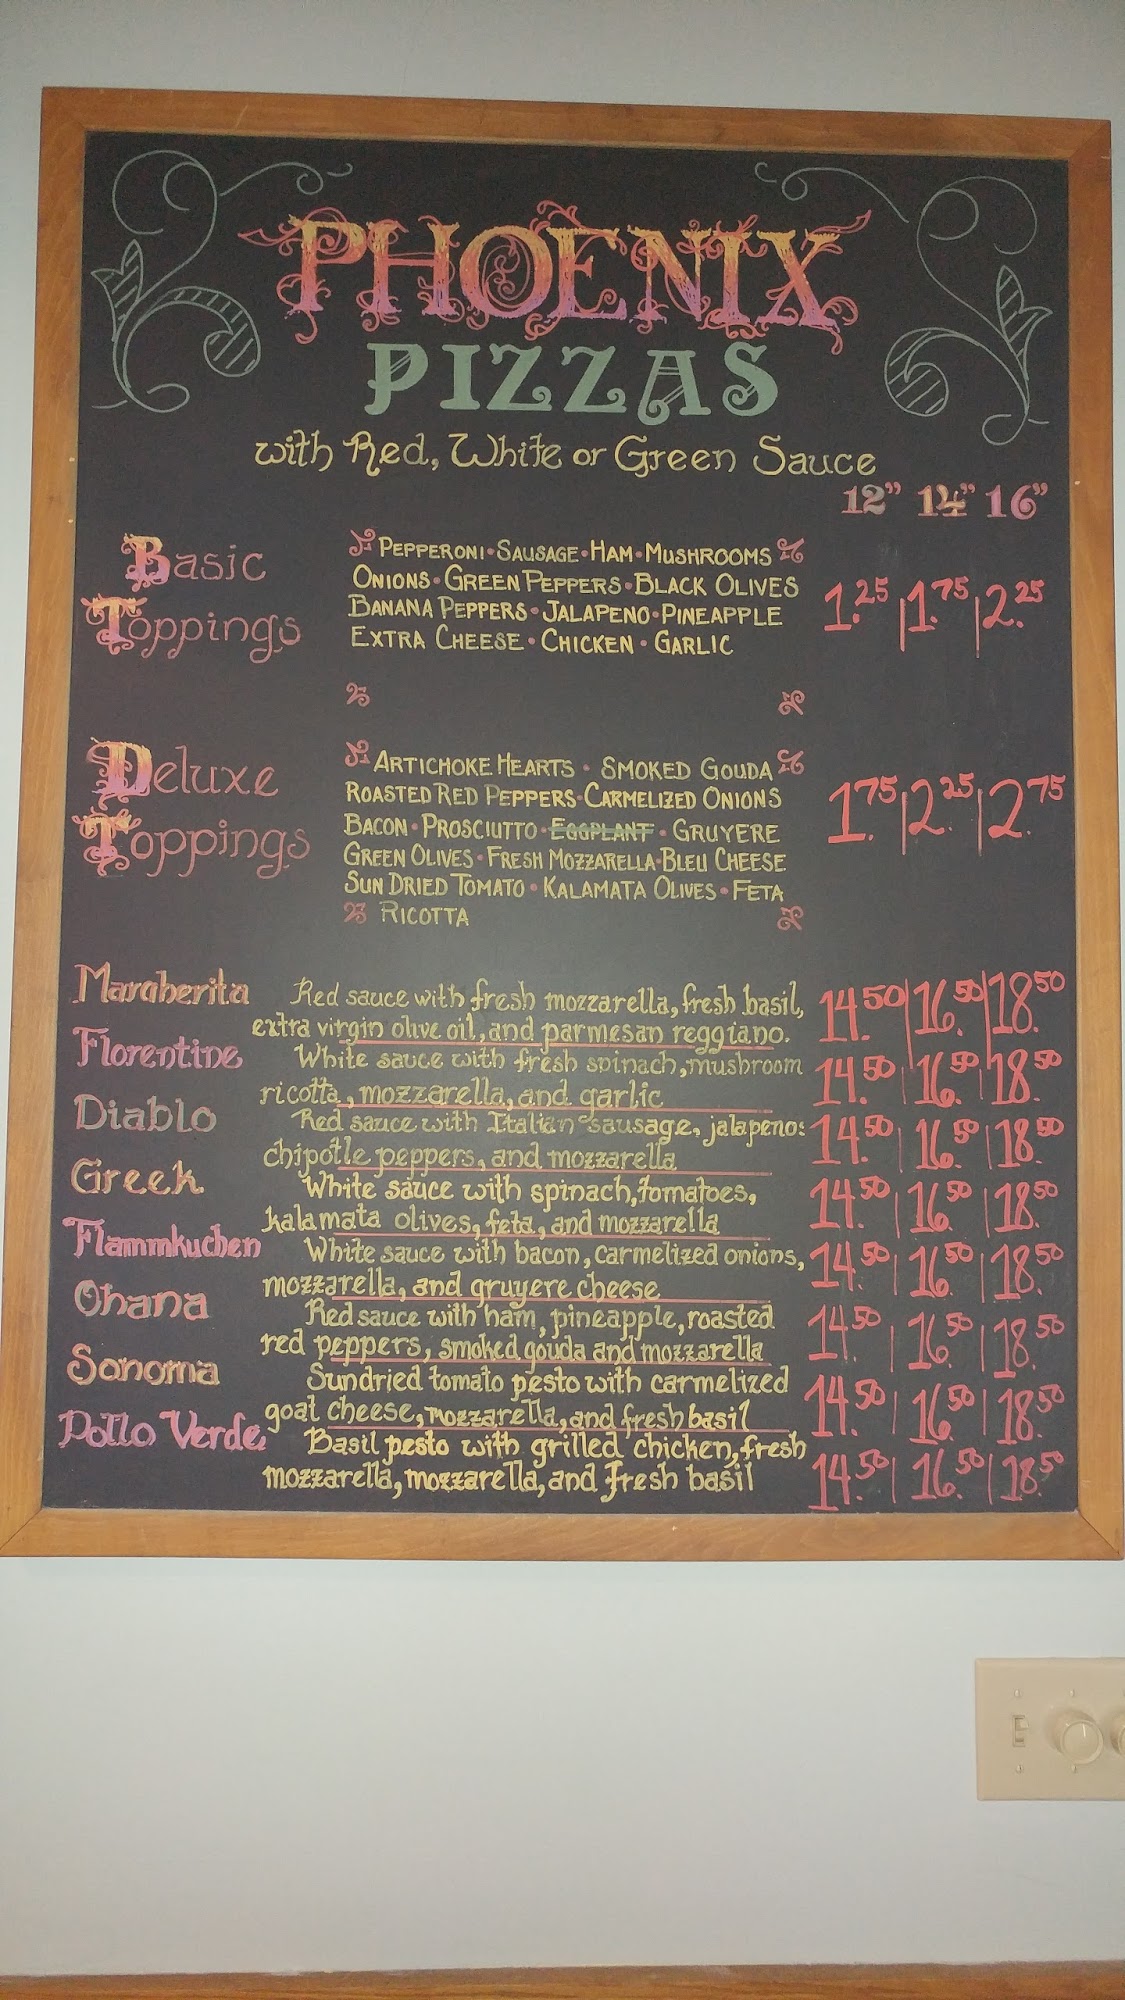 PHOENIX
PIZZAS
with Red, White or Green Sauce
12" 14" 16"
Basic
Toppings
PEPPERONI • SAUSAGE • HAM • MUSHROOMS
ONIONS • GREEN PEPPERS • BLACK OLIVES
BANANA PEPPERS • JALAPENO • PINEAPPLE
EXTRA CHEESE • CHICKEN • GARLIC
1.25 | 1.75 | 2.25
Deluxe
Toppings
ARTICHOKE HEARTS • SMOKED GOUDA
ROASTED RED PEPPERS • CARMELIZED ONIONS
BACON • PROSCIUTTO • EGGPLANT • GRUYERE
GREEN OLIVES • FRESH MOZZARELLA • BLEU CHEESE
SUN DRIED TOMATO • KALAMATA OLIVES • FETA
RICOTTA
1.75 | 2.25 | 2.75
Margherita
Red sauce with fresh mozzarella, fresh basil,
extra virgin olive oil, and parmesan reggiano.
14.50 | 16.50 | 18.50
Florentine
White sauce with fresh spinach, mushroom
ricotta, mozzarella, and garlic
14.50 | 16.50 | 18.50
Diablo
Red sauce with Italian sausage, jalapenos
chipotle peppers, and mozzarella
14.50 | 16.50 | 18.50
Greek
White sauce with spinach, tomatoes,
kalamata olives, feta, and mozzarella
14.50 | 16.50 | 18.50
Flammkuchen
White sauce with bacon, carmelized onions,
mozzarella, and gruyere cheese
14.50 | 16.50 | 18.50
Ohana
Red sauce with ham, pineapple, roasted
red peppers, smoked gouda and mozzarella
14.50 | 16.50 | 18.50
Sonoma
Sundried tomato pesto with carmelized
goat cheese, mozzarella, and fresh basil
14.50 | 16.50 | 18.50
Pollo Verde
Basil pesto with grilled chicken, fresh
mozzarella, mozzarella, and fresh basil
14.50 | 16.50 | 18.50